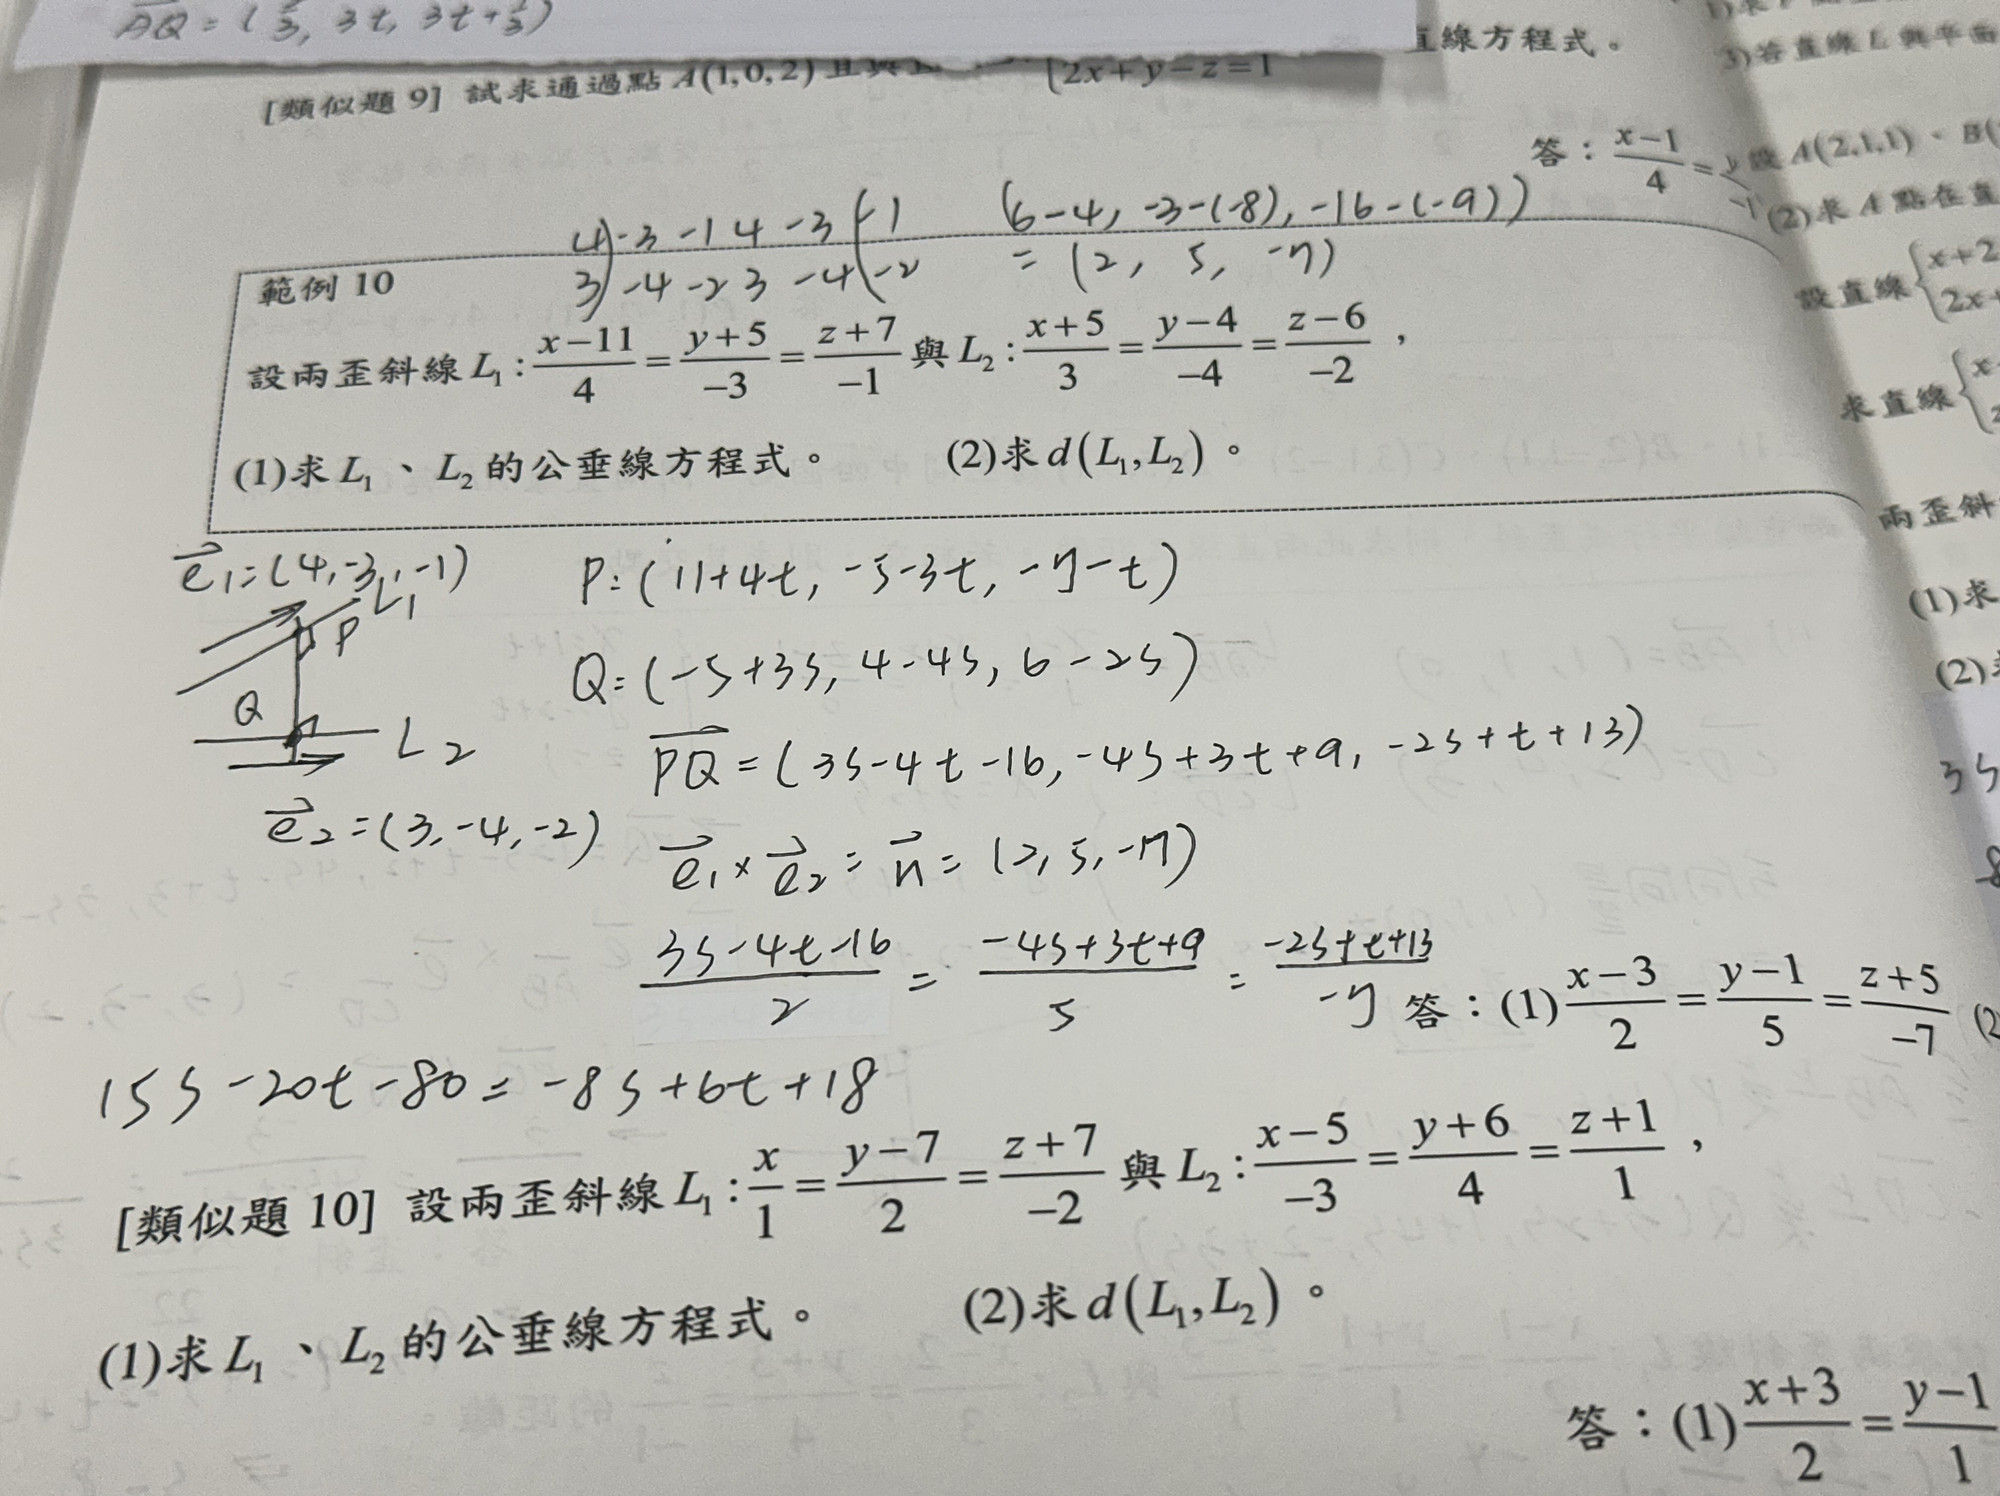 AQ = ( , 3t, 3t+ )
[類似題 9] 試求通過點 A(1,0,2) 且與直
2x+y−z=1
直線方程式。
3)若直線 L 與平面
答：(x−1)/4 =
設 A(2,1,1)、B(
(2)求 A 點在直
4) -3 -1 4 -3 (-1
3) -4 -2 3 -4 (-2
(6-4, -3-(-8), -16-(-9))
= (2, 5, -7)
範例 10
設兩歪斜線 L₁ : (x−11)/4 = (y+5)/−3 = (z+7)/−1 與 L₂ : (x+5)/3 = (y−4)/−4 = (z−6)/−2，
(1)求 L₁、L₂ 的公垂線方程式。 (2)求 d(L₁,L₂)。
設直線 { x+2
2x+
求直線 { x
兩歪斜
(1)求
(2)
e₁=(4,-3,-1)
L₁
P
Q
L₂
e₂=(3,-4,-2)
P: (11+4t, -5-3t, -7-t)
Q: (-5+3s, 4-4s, 6-2s)
PQ = (3s-4t-16, -4s+3t+9, -2s+t+13)
e₁ × e₂ = n = (2, 5, -7)
(3s-4t-16)/2 = (-4s+3t+9)/5 = (-2s+t+13)/-7
答：(1) (x−3)/2 = (y−1)/5 = (z+5)/−7 (2
15s-20t-80 = -8s+6t+18
[類似題 10] 設兩歪斜線 L₁ : x/1 = (y−7)/2 = (z+7)/−2 與 L₂ : (x−5)/−3 = (y+6)/4 = (z+1)/1，
(1)求 L₁、L₂ 的公垂線方程式。 (2)求 d(L₁,L₂)。
答：(1) (x+3)/2 = (y−1)/1